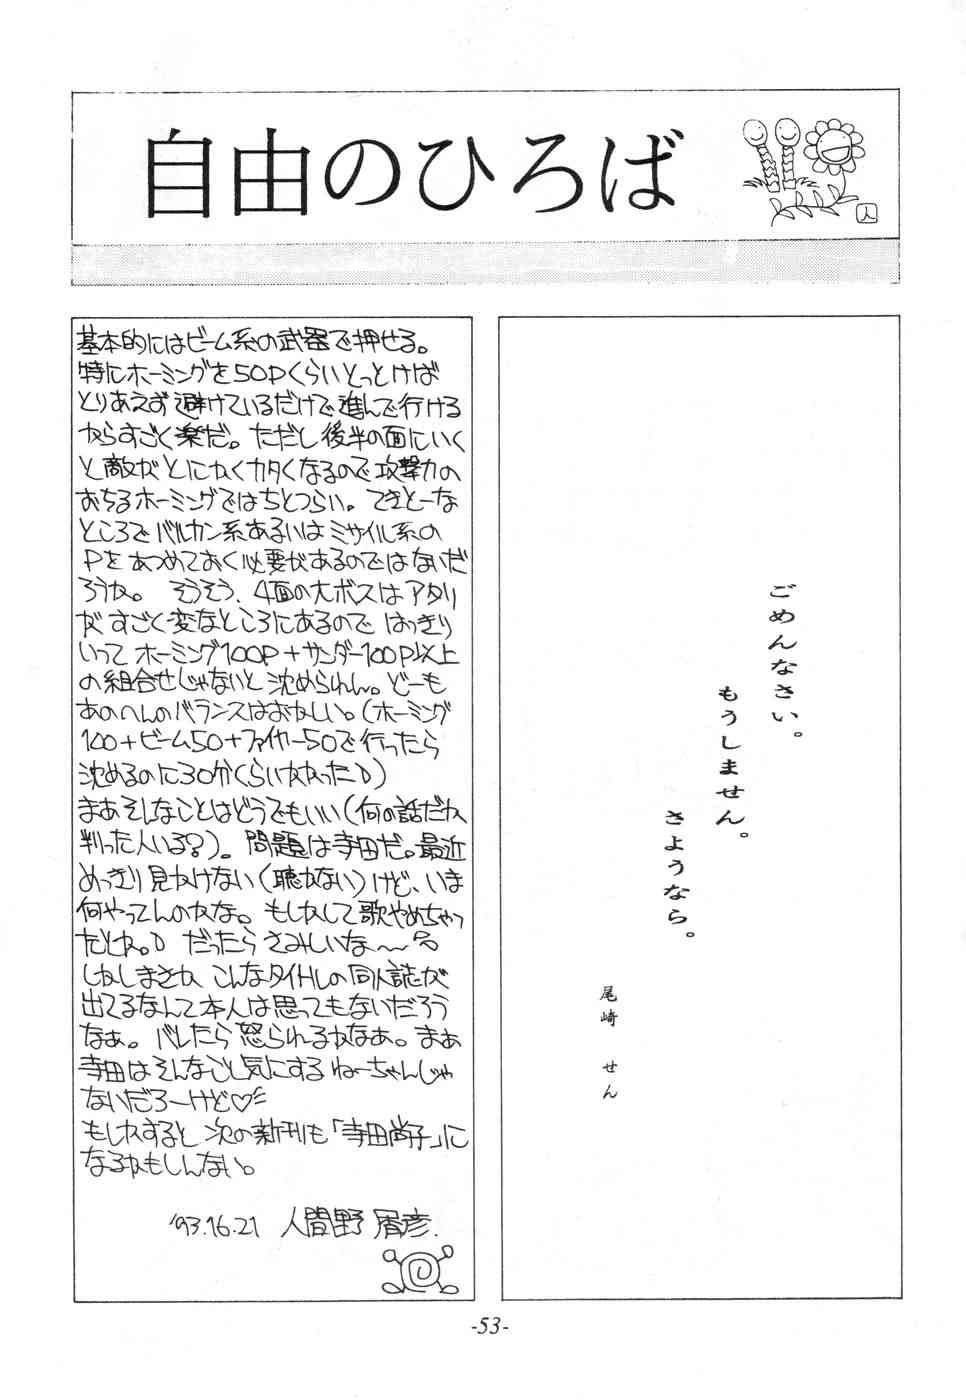 自由のひろば
人
基本的にはビーム系の武器で押せる。
特にホーミングを50Pくらいとっとけば
とりあえず避けているだけで進んで行ける
からすごく楽だ。ただし後半の面にいく
と敵がとにかくカタくなるので攻撃力の
おちるホーミングではちとつらい。てきとーな
ところでバルカン系あるいはミサイル系の
Pをあつめておく必要があるのではないだ
ろうか。そうそう、4面の大ボスはアタリ
がすごく変なところにあるのではっきり
いってホーミング100P+サンダー100P以上
の組合せじゃないと沈められん。どーも
あのへんのバランスはおかしい。(ホーミング
100+ビーム50+ファイヤー50で行ったら
沈めるのに30分くらいかかった)
まあそんなことはどうでもいい(何の話だか
判った人いる?)。問題は寺田だ。最近
めっきり見かけない(聴かない)けど、いま
何やってんのかな。もしかして歌やめちゃっ
たとか。だったらさみしいな〜
しかしまさか、こんなタイトルの同人誌が
出てるなんて本人は思ってもないだろう
なぁ。バレたら怒られるかなぁ。まぁ
寺田はそんなこと気にするねーちゃんじゃ
ないだろーけど♡
もしかすると次の新刊も「寺田尚子」に
なるかもしんない。
'93.16.21 人間野 屑彦.
ごめんなさい。
もうしません。
さようなら。
尾崎 せん
-53-